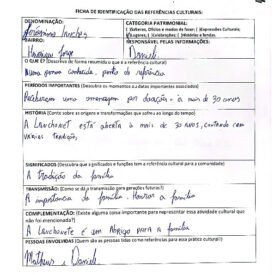 FICHA DE IDENTIFICAÇÃO DAS REFERÊNCIAS CULTURAIS:
DENOMINAÇÃO:
Lanches
CATEGORIA PATRIMONIAL:
( )Saberes, Ofícios e modos de fazer; ( )Expressões Culturais;
Lugares, ( )Celebrações; ( )Histórias e lendas.
BAIRRO:
Henrique Jorge
RESPONSÁVEL PELAS INFORMAÇÕES:
Daniele
O QUE É? (Descreva de forma resumida o que é a referência cultural)
Numa conhecida, ponto de referência
PERÍODOS IMPORTANTES (Descreva os momentos ou datas importantes)
Receberam uma homenagem por duração - a mais de 30 anos
HISTÓRIA (Conte sobre as origens e transformações que sofreu ao longo do tempo)
A Lanchonet está aberta a mais de 30 anos, contendo com
várias tradições,
SIGNIFICADOS (Descreva que significados e funções tem a referência cultural para a comunidade)
A tradição da família
TRANSMISSÃO: (Como se dá a transmissão para gerações futuras?)
A importância da família. a família
COMPLEMENTAÇÃO: (Existe alguma coisa importante para representar essa atividade cultural que
não foi mencionada?)
A Lanchonete é um Abrigo para a família
PESSOAS ENVOLVIDAS (Quem são as pessoas tidas como referências para essa prática cultural?)
Matheus e Daniele